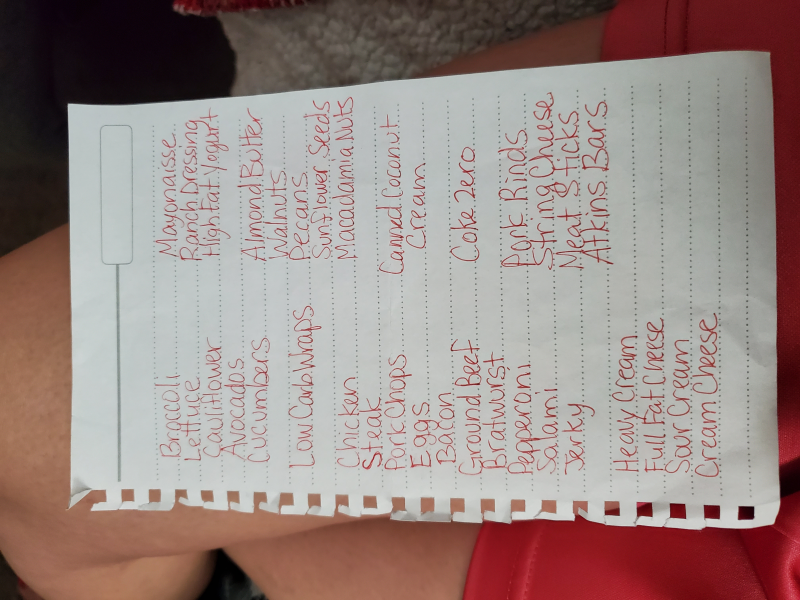 Broccoli
Lettuce
Cauliflower
Avocados
Cucumbers
Low Carb Wraps
Chicken
Steak
Pork Chops
Eggs
Bacon
Ground Beef
Bratwurst
Pepperoni
Salami
Jerky
Heavy Cream
Full Fat Cheese
Sour Cream
Cream Cheese
Mayonaisse
Ranch Dressing
High Fat Yogurt
Almond Butter
Walnuts
Pecans
Sunflower Seeds
Macadamia Nuts
Canned Coconut
Cream
Coke Zero
Pork Rinds
String Cheese
Meat Sticks
Atkins Bars